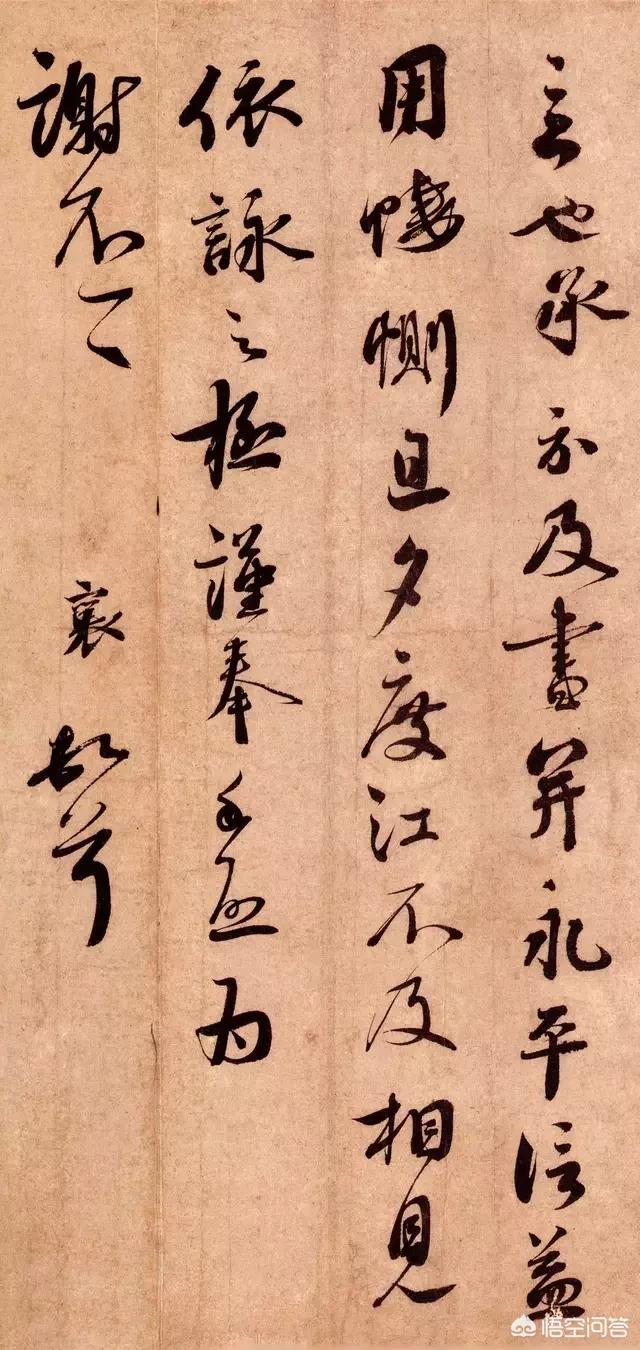 言也承示及書并永平信益
用悽惻旦夕度江不及相見
依詠之極謹奉手啓為
謝不一一 襄 頓首
悟空问答